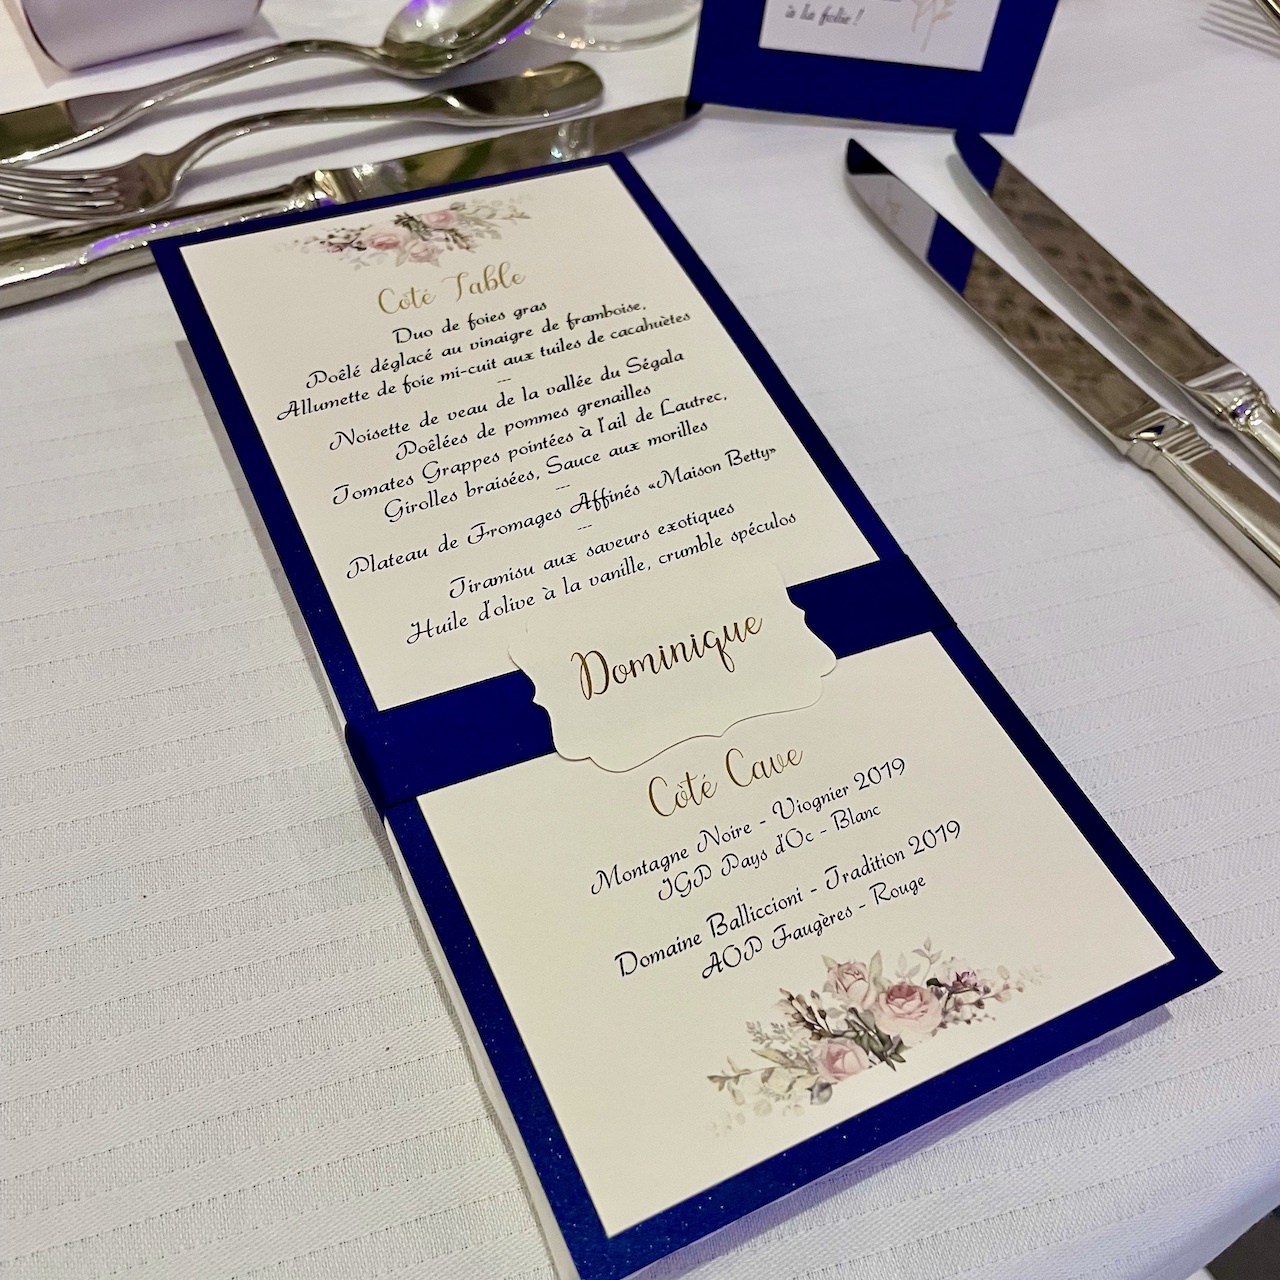 à la folie !
Côté Table
Duo de foies gras
Poêlé déglacé au vinaigre de framboise,
Allumette de foie mi-cuit aux tuiles de cacahuètes
---
Noisette de veau de la vallée du Ségala
Poêlées de pommes grenailles
Tomates Grappes pointées à l'ail de Lautrec,
Girolles braisées, Sauce aux morilles
---
Plateau de Fromages Affinés «Maison Betty»
---
Tiramisu aux saveurs exotiques
Huile d'olive à la vanille, crumble spéculos
Dominique
Côté Cave
Montagne Noire - Viognier 2019
IGP Pays d'Oc - Blanc
Domaine Balliccioni - Tradition 2019
AOP Faugères - Rouge